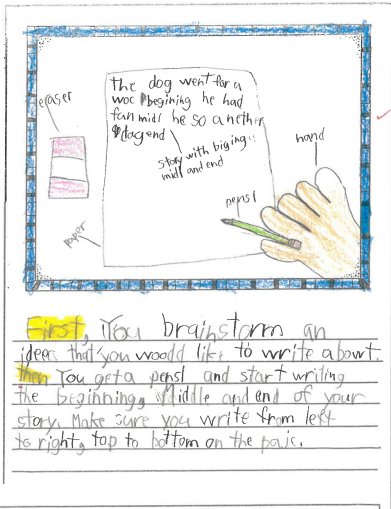 the dog went for a
woc begining he had
fun midl he so anether
dog end
eraser
story with biging
midl and end
hand
pensl
paper
First, You brainstorm an
ideea that you woodd like to write abowt.
then You get a pensl and start writing
the beginning, Middle and end of your
story. Make sure you write from left
to right, top to bottom on the paic.